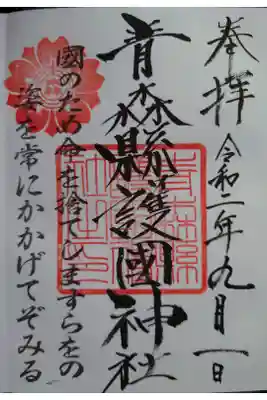 奉拝 令和二年九月一日
青森縣護國神社
國のため命を捨てしますらをの
姿を常にかかげてぞみる